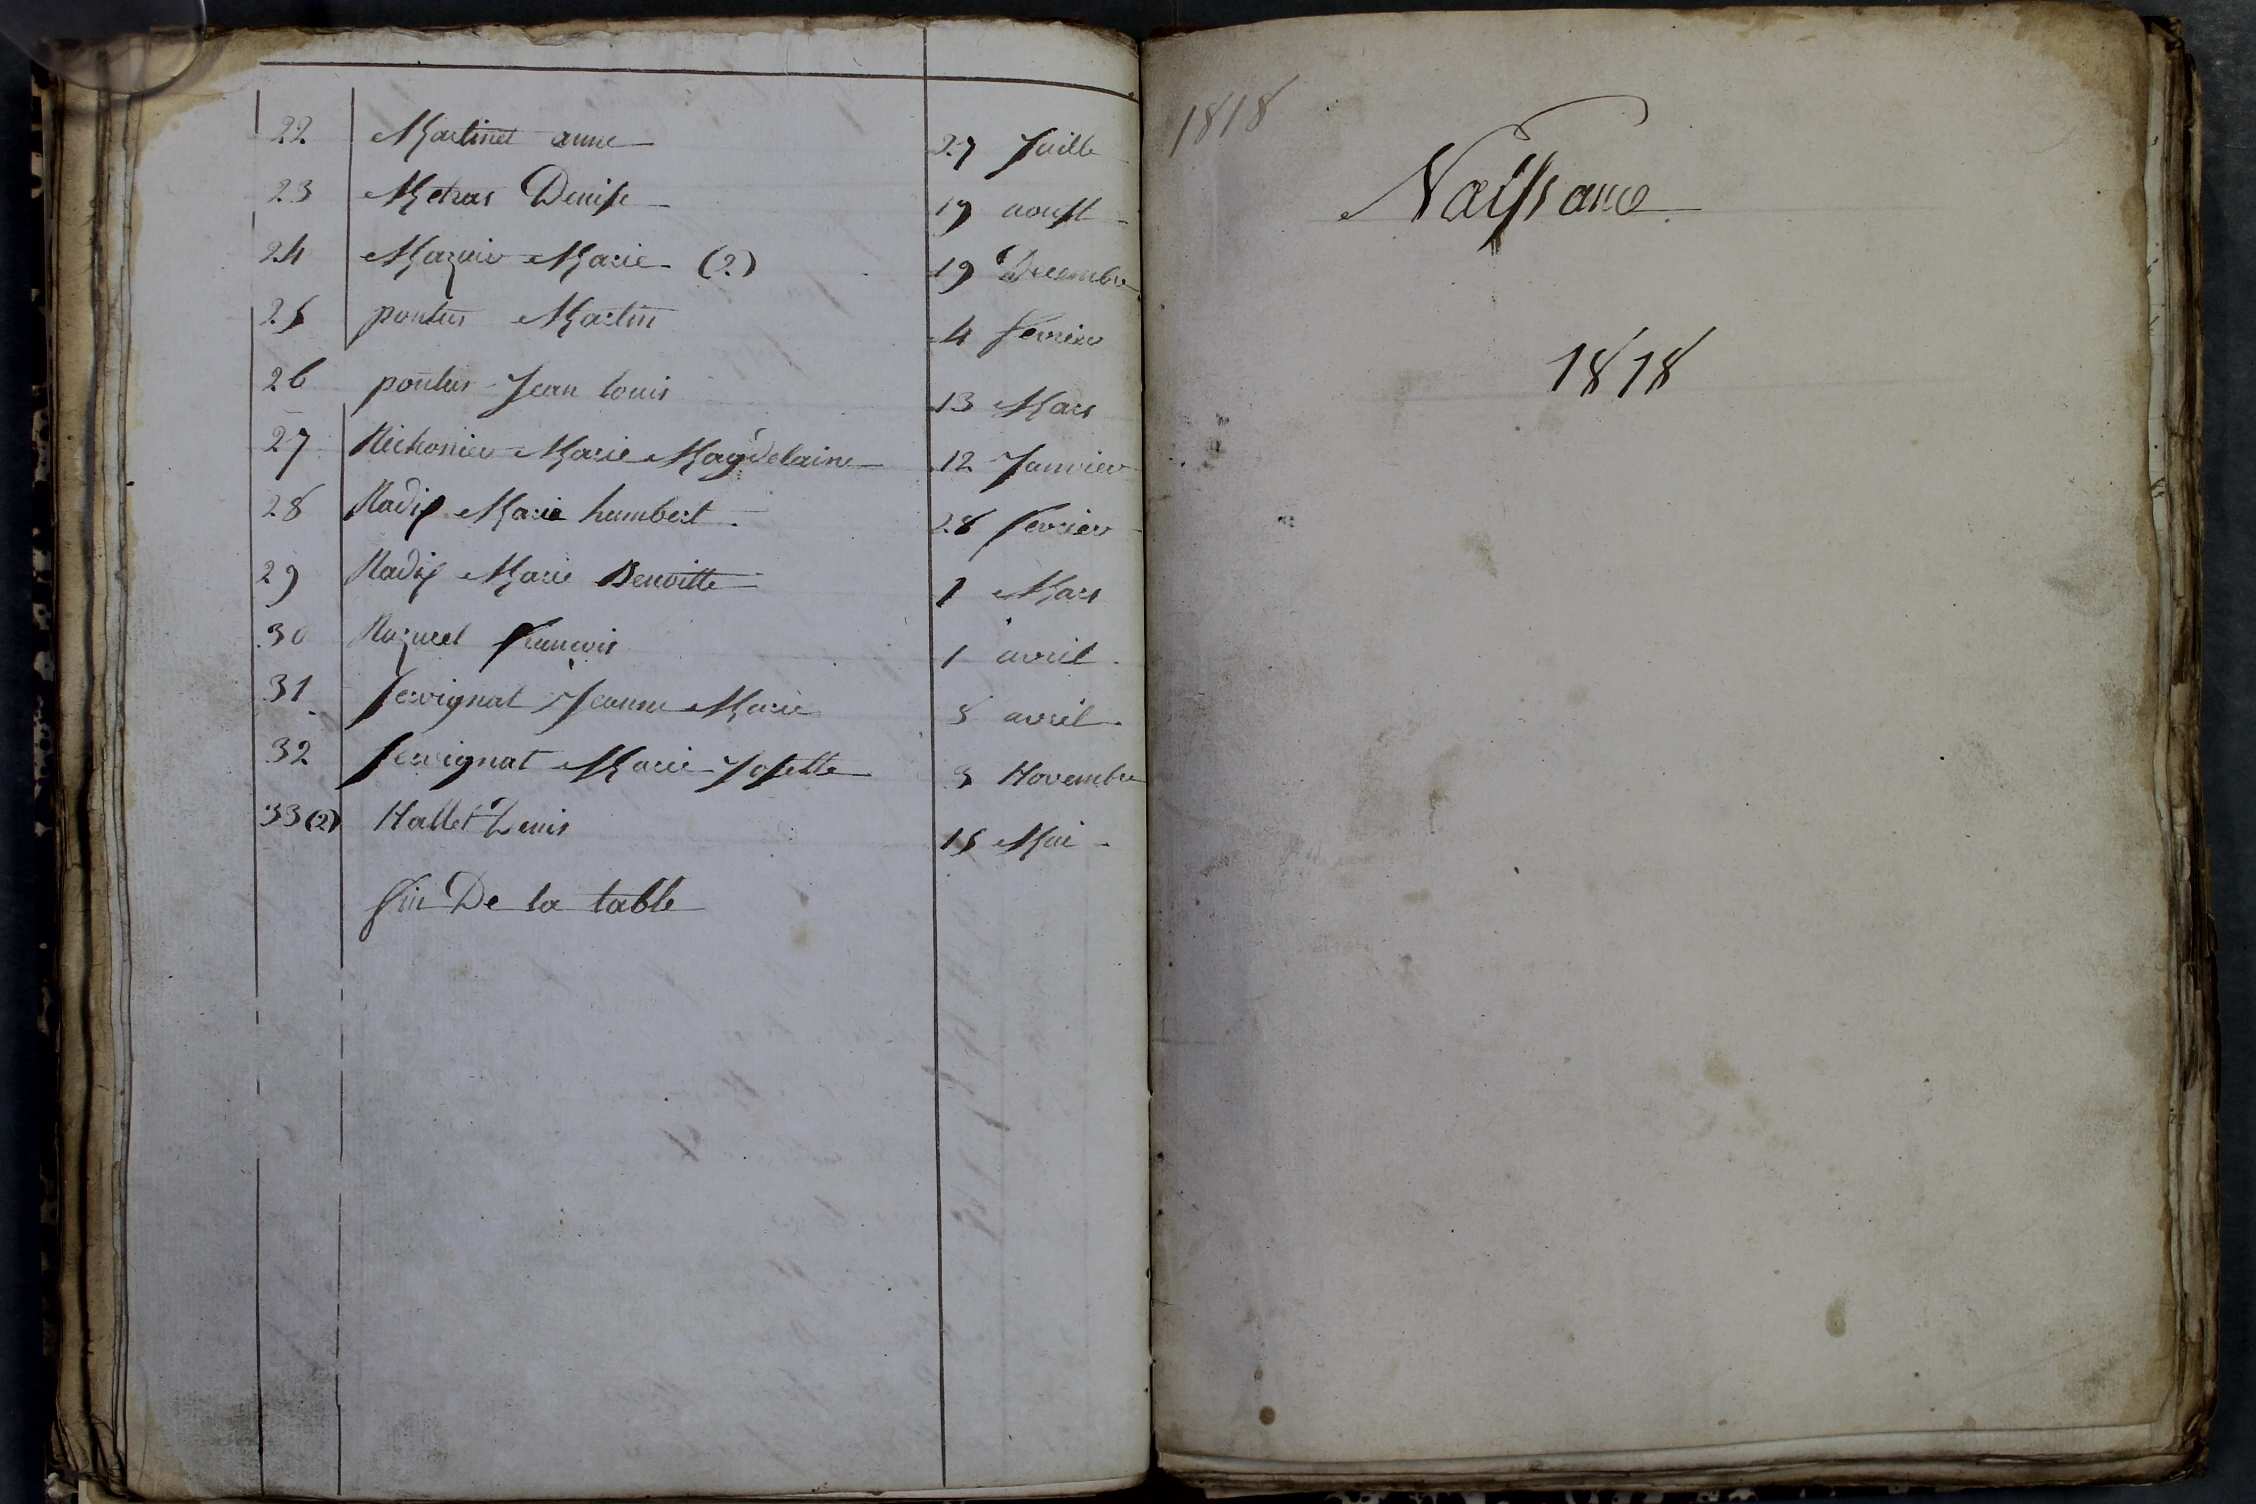 22 Martinet anne 27 Juille
23 Metras Denise 19 aoust
24 Mazuir Marie (2) 19 Decembre
25 pontus Martin 4 fevrier
26 pontus Jean louis 13 Mars
27 Richonier Marie Magdelaine 12 Janvier
28 Radix Marie humbert 28 fevrier
29 Radix Marie Benoitte 1 Mars
30 Razurel francois 1 avril
31 servignat Jeanne Marie 5 avril
32 servignat Marie Josette 3 Novembre
33 (2) Hallet Denis 15 Mai
fin De la table
1818
Naissance
1818